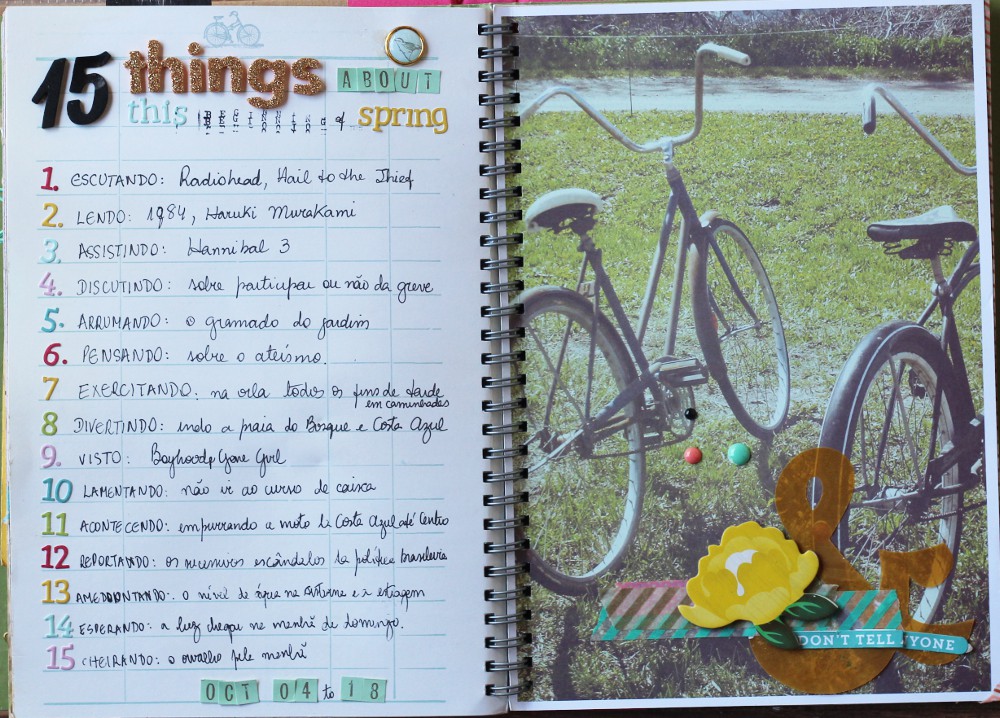 15 things ABOUT
this of spring
1. ESCUTANDO: Radiohead, Hail to the Thief
2. LENDO: 1984, Haruki Murakami
3. ASSISTINDO: Hannibal 3
4. DISCUTINDO: sobre participar ou não da greve
5. ARRUMANDO: o gramado do jardim
6. PENSANDO: sobre o ateísmo.
7 EXERCITANDO. na orla todos os fins de tarde
em caminhadas
8 DIVERTINDO: indo a praia do Bosque e Costa Azul
9. VISTO: Boyhood e Gone Girl
10 LAMENTANDO: não ir ao curso de caixa
11 ACONTECENDO: empurrando a moto Costa Azul até Centro
12 REPORTANDO: os sucessivos escândalos da política brasileira
13 o nível de água na e a estiagem
14 ESPERANDO: a luz chegou na manhã de domingo.
15 CHEIRANDO: o orvalho pela manhã
OCT 04 to 18
&
DON'T TELL YONE